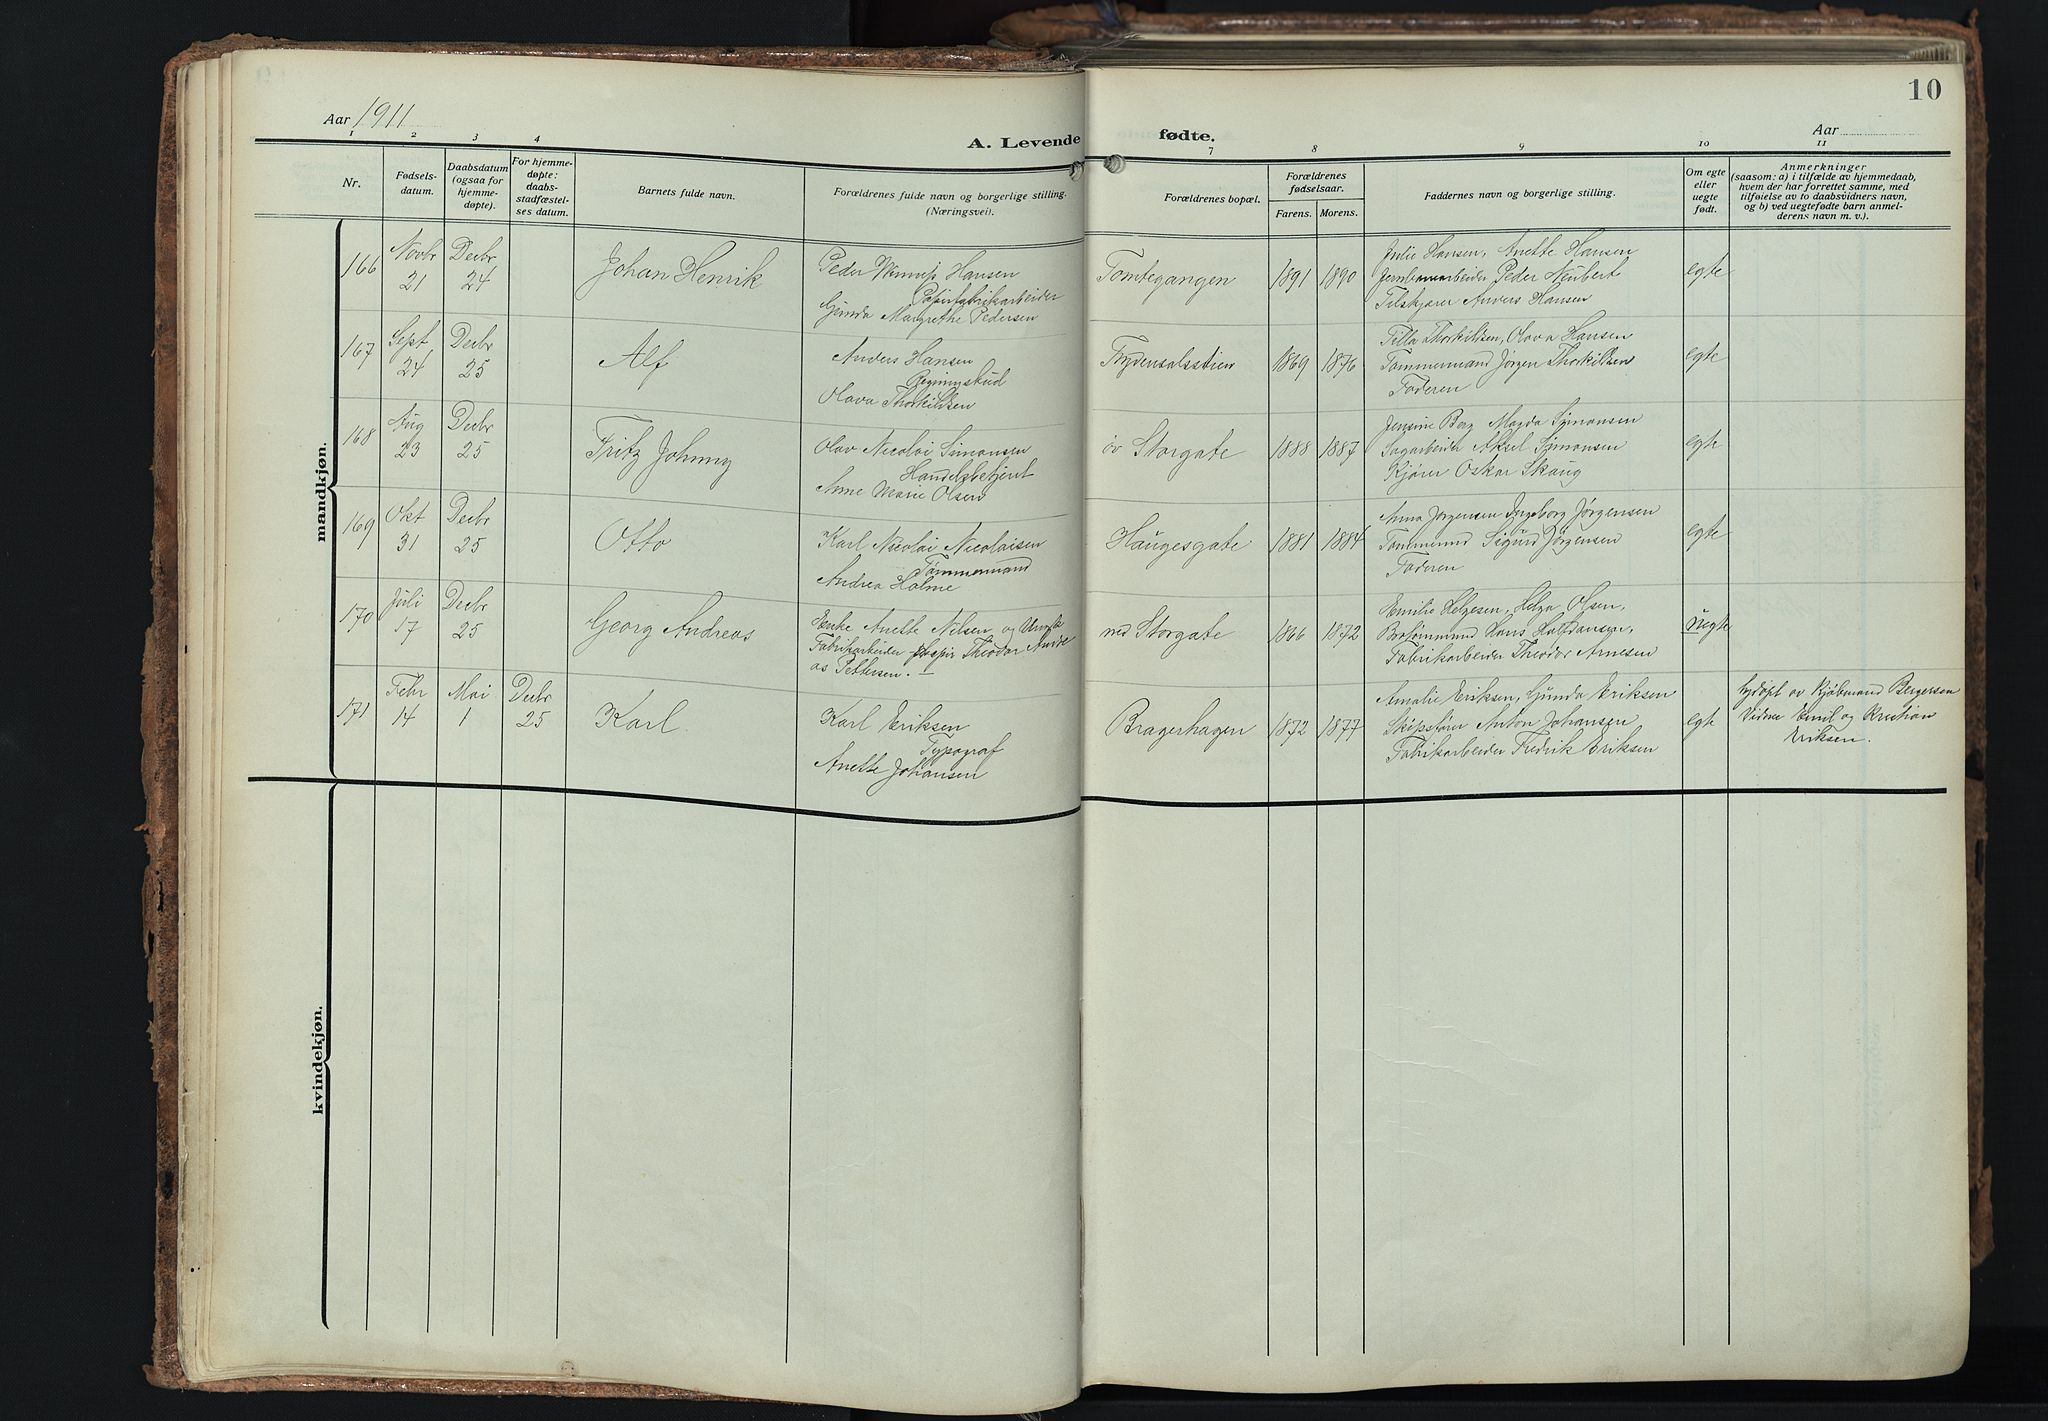 10
Aar 1911
A. Levende fødte.
Aar
1 2 3 4 7 8 9 10 11
Nr.
Fødsels-
datum.
Daabsdatum
(ogsaa for
hjemme-
døpte).
For hjemme-
døpte:
daabs-
stadfæstel-
ses datum.
Barnets fulde navn.
Forældrenes fulde navn og borgerlige stilling.
(Næringsvei).
Forældrenes bopæl.
Forældrenes
fødselsaar.
Farens. Morens.
Faddernes navn og borgerlige stilling.
Om egte
eller
uegte
født.
Anmerkninger
(saasom: a) i tilfælde av hjemmedaab,
hvem der har forrettet samme, med
tilføielse av to daabsvidners navn,
og b) ved uegtefødte barn anmel-
derens navn m. v.).
mandkjøn.
166
Novbr
21
Decbr
24
Johan Henrik
Peder Hansen
Papirfabrikarbeider
Gunda Margrethe Pedersen
Tomtegangen
1891 1890
Julie Hansen, Anette Hansen
Peder Neubert
Anders Hansen
egte
167
Sept
24
Decbr
25
Alf
Anders Hansen
Bygningsbud
Olava Thorkildsen
Frydensalsstien
1869 1876
Tilla Thorkildsen, Olava Hansen
Tømmermand Jørgen Thorkildsen
Faderen
egte
168
Aug
23
Decbr
25
Fritz Johnny
Olav Nicolai Simonsen
Handelsbetjent
Anne Marie Olsen
øv Storgate
1888 1887
Jensine Berg Magda Simonsen
Sagarbeider Aksel Simonsen
Kjører Oskar Skaug
egte
169
Okt
31
Decbr
25
Otto
Karl Nicolai Nicolaisen
Tømmermand
Andrea Holme
Haugesgate
1881 1884
Anna Jørgensen Ingeborg Jørgensen
Tømmermd Sigurd Jørgensen
Faderen
egte
170
Juli
17
Decbr
25
Georg Andreas
Enke Anette Nilsen og Ungk
Fabrikarbeider Theodor Andre
as Pettersen.
ned Storgate
1866 1872
Emilie Helgesen, Helga Olsen,
Brotømmermd Hans Halfdansen,
Fabrikarbeider Theodor Arnesen
uegte
171
Febr
14
Mai
1
Decbr
25
Karl
Karl Eriksen
Typograf
Anette Johansen
Bragerhagen
1872 1877
Amalie Eriksen, Gunda Eriksen
Skibsfører Anton Johansen
Fabrikarbeider Fredrik Eriksen
egte
Hjdøpt av Kjøbmand Bergersen
Vidne Emil og Kristian
Eriksen.
kvindekjøn.